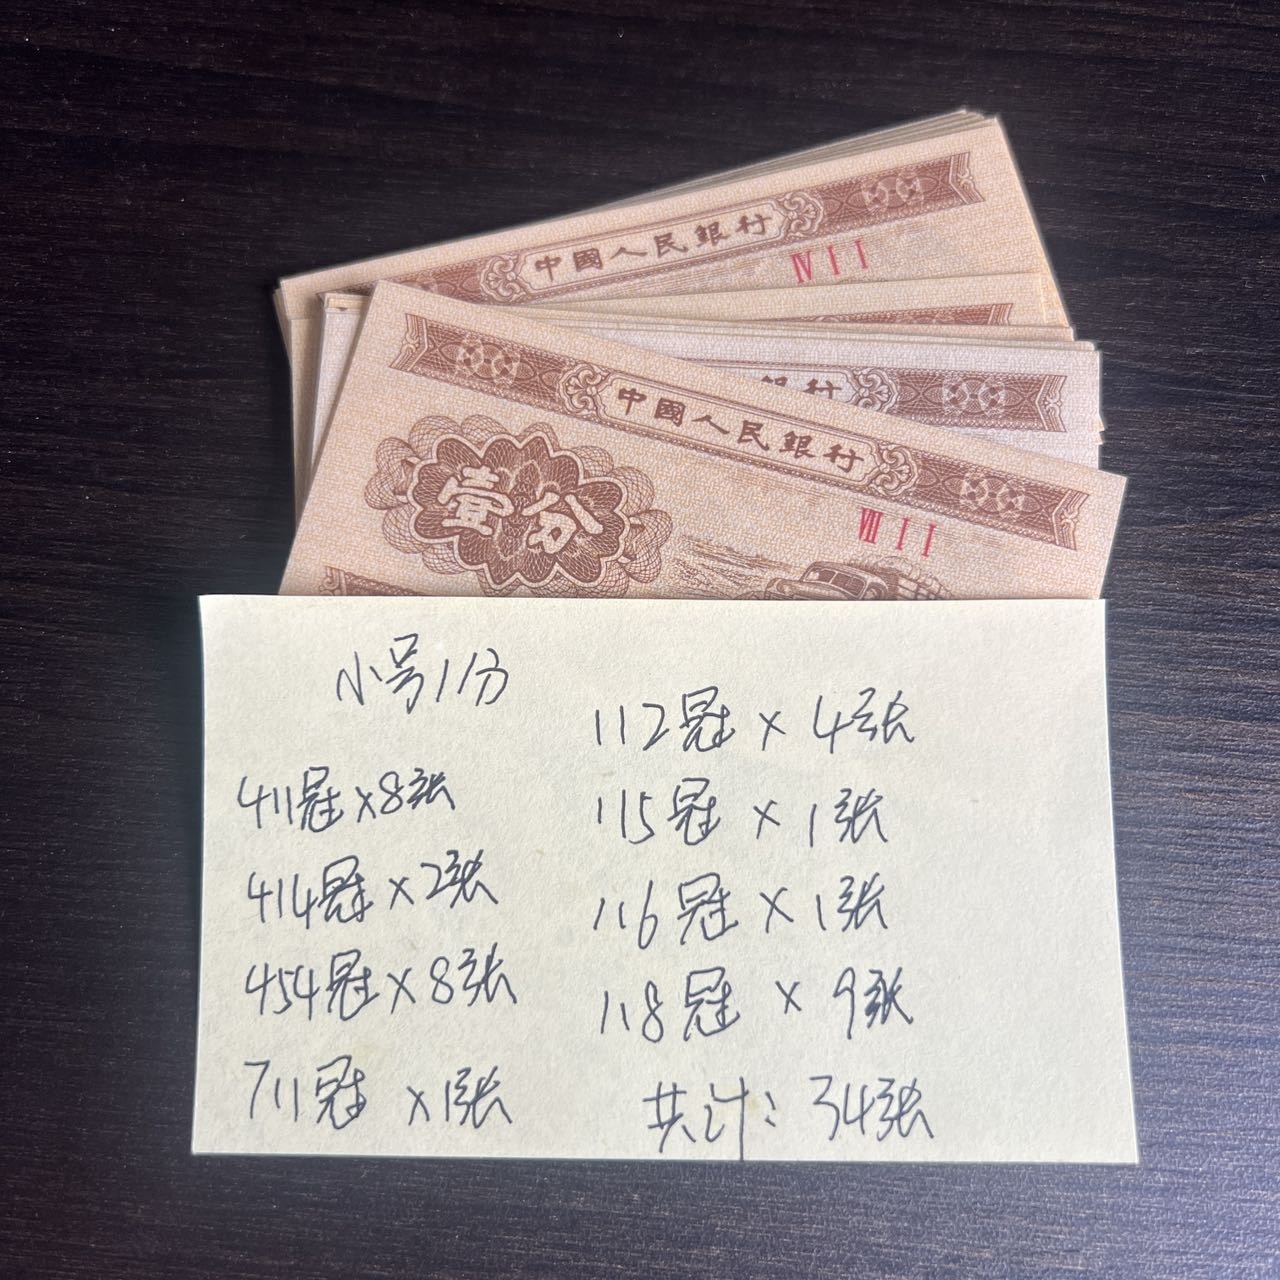 中國人民銀行
IV I I
銀行
中國人民銀行
壹分
VII I I
小号1分
411冠×8张
414冠×2张
454冠×8张
711冠×1张
112冠×4张
115冠×1张
116冠×1张
118冠×9张
共计：34张